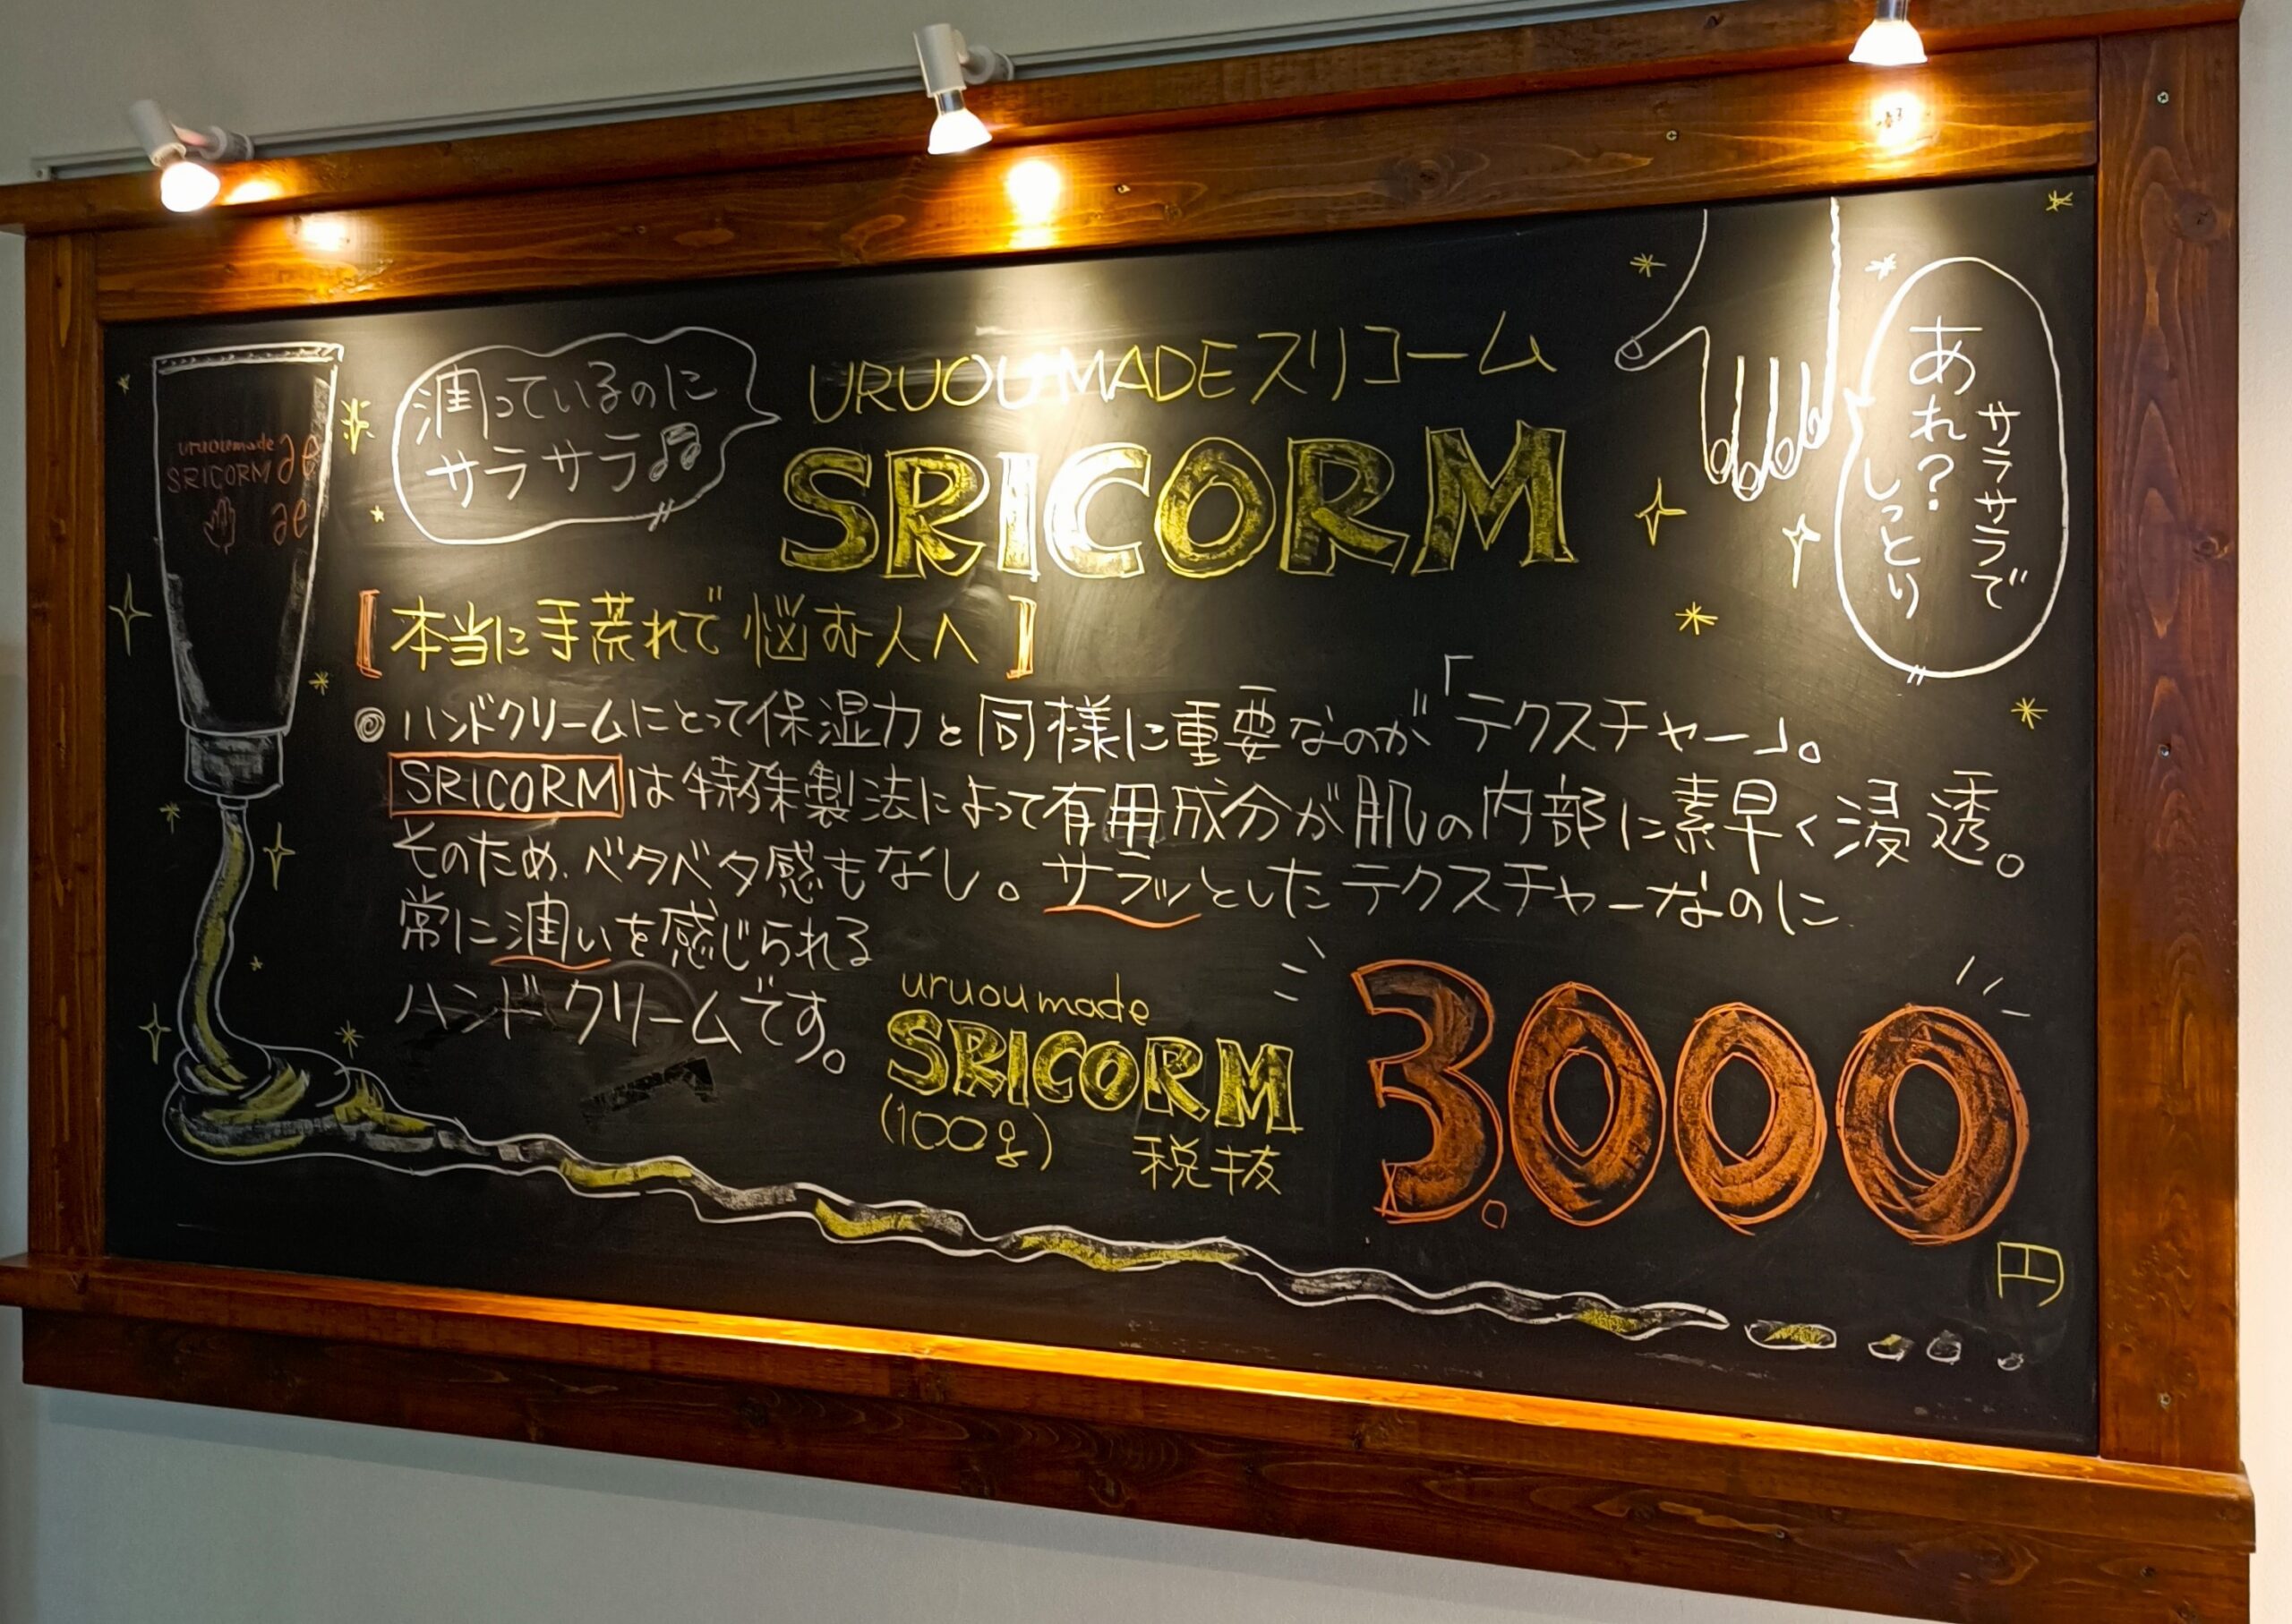 uruoumade
SRICORM
ae
ae
潤っているのに
サラサラ♫
URUOUMADEスリコーム
SRICORM
サラサラで
あれ?しっとり
【本当に手荒れで悩む人へ】
◎ハンドクリームにとって保湿力と同様に重要なのが「テクスチャー」。
SRICORMは特殊製法によって有用成分が肌の内部に素早く浸透。
そのため、ベタベタ感もなし。サラッとしたテクスチャーなのに
常に潤いを感じられる
ハンドクリームです。
uruoumade
SRICORM
(100g) 税抜
3.000
円